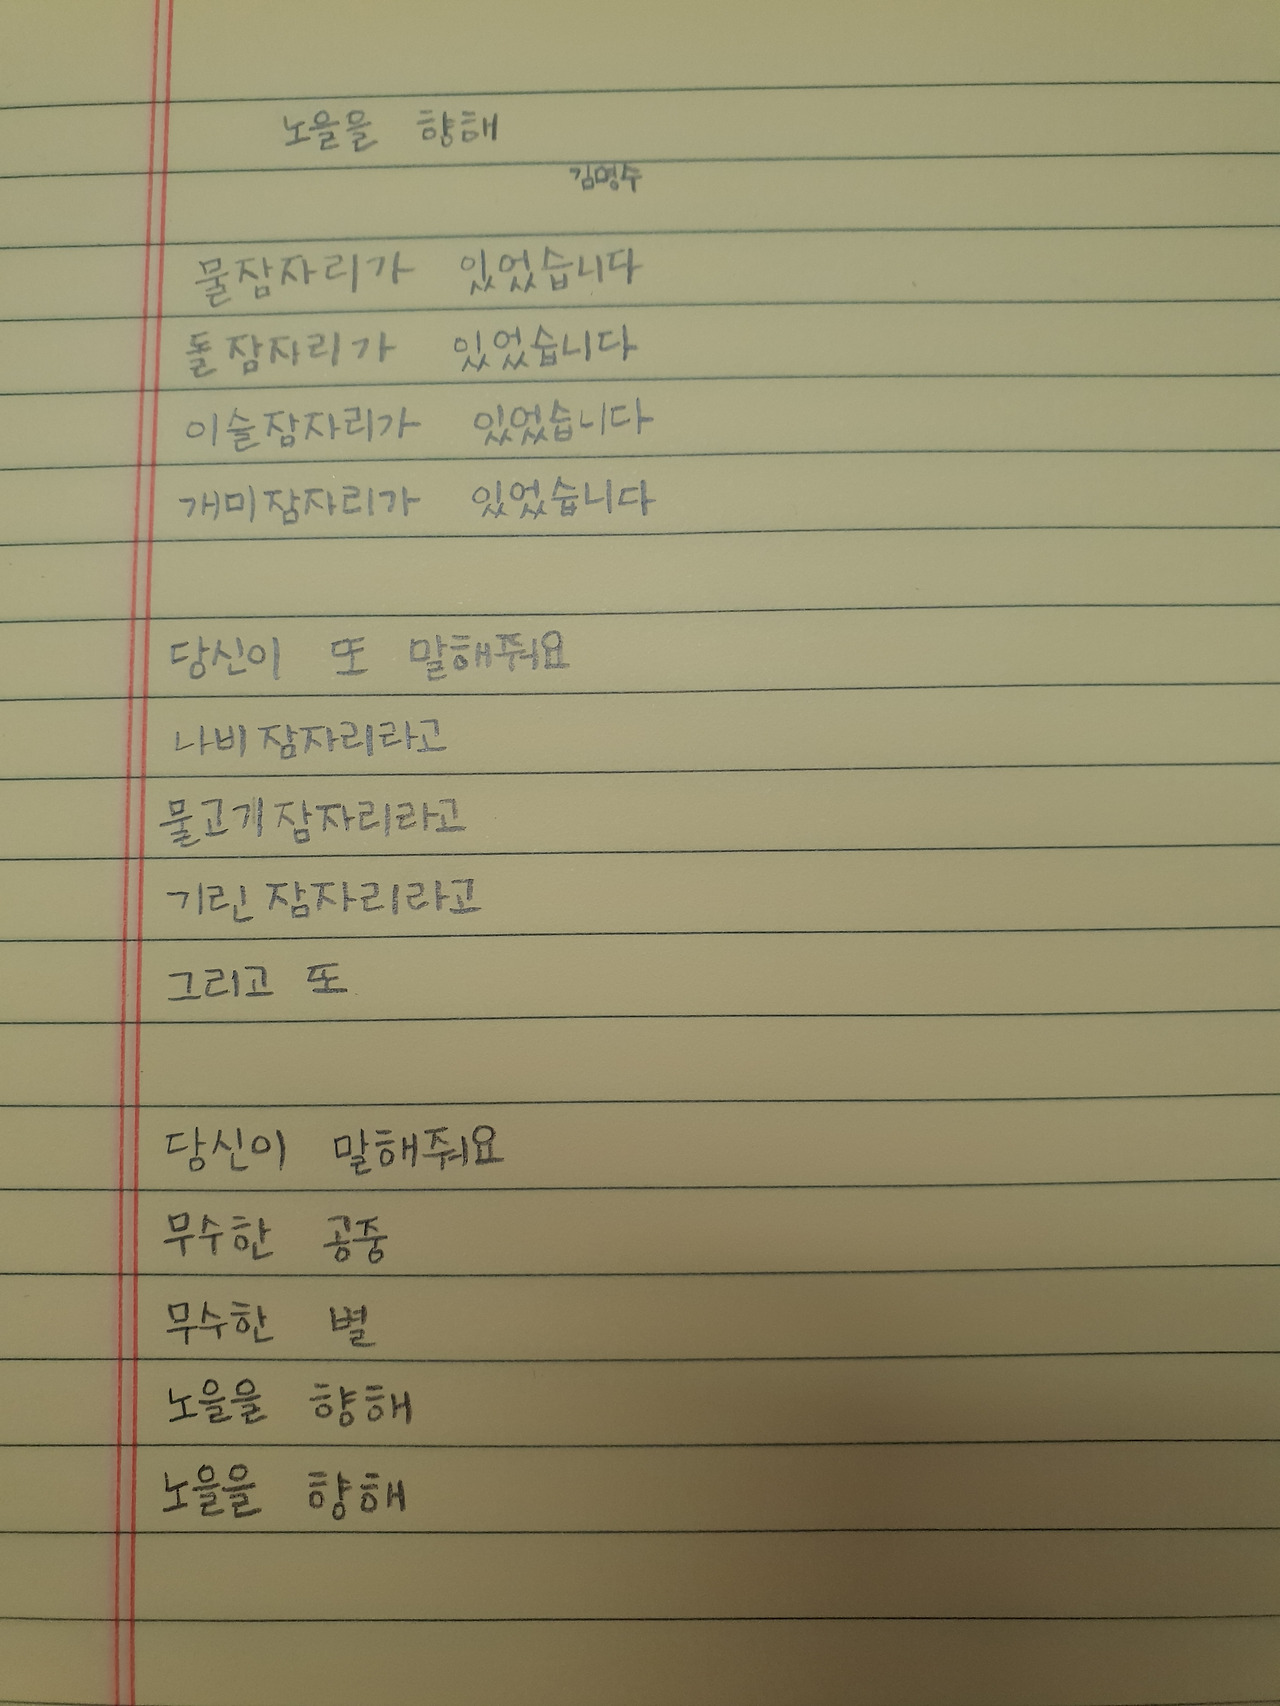 노을을 향해
김명수
물잠자리가 있었습니다
돌잠자리가 있었습니다
이슬잠자리가 있었습니다
개미잠자리가 있었습니다
당신이 또 말해줘요
나비잠자리라고
물고기잠자리라고
기린잠자리라고
그리고 또
당신이 말해줘요
무수한 공중
무수한 별
노을을 향해
노을을 향해